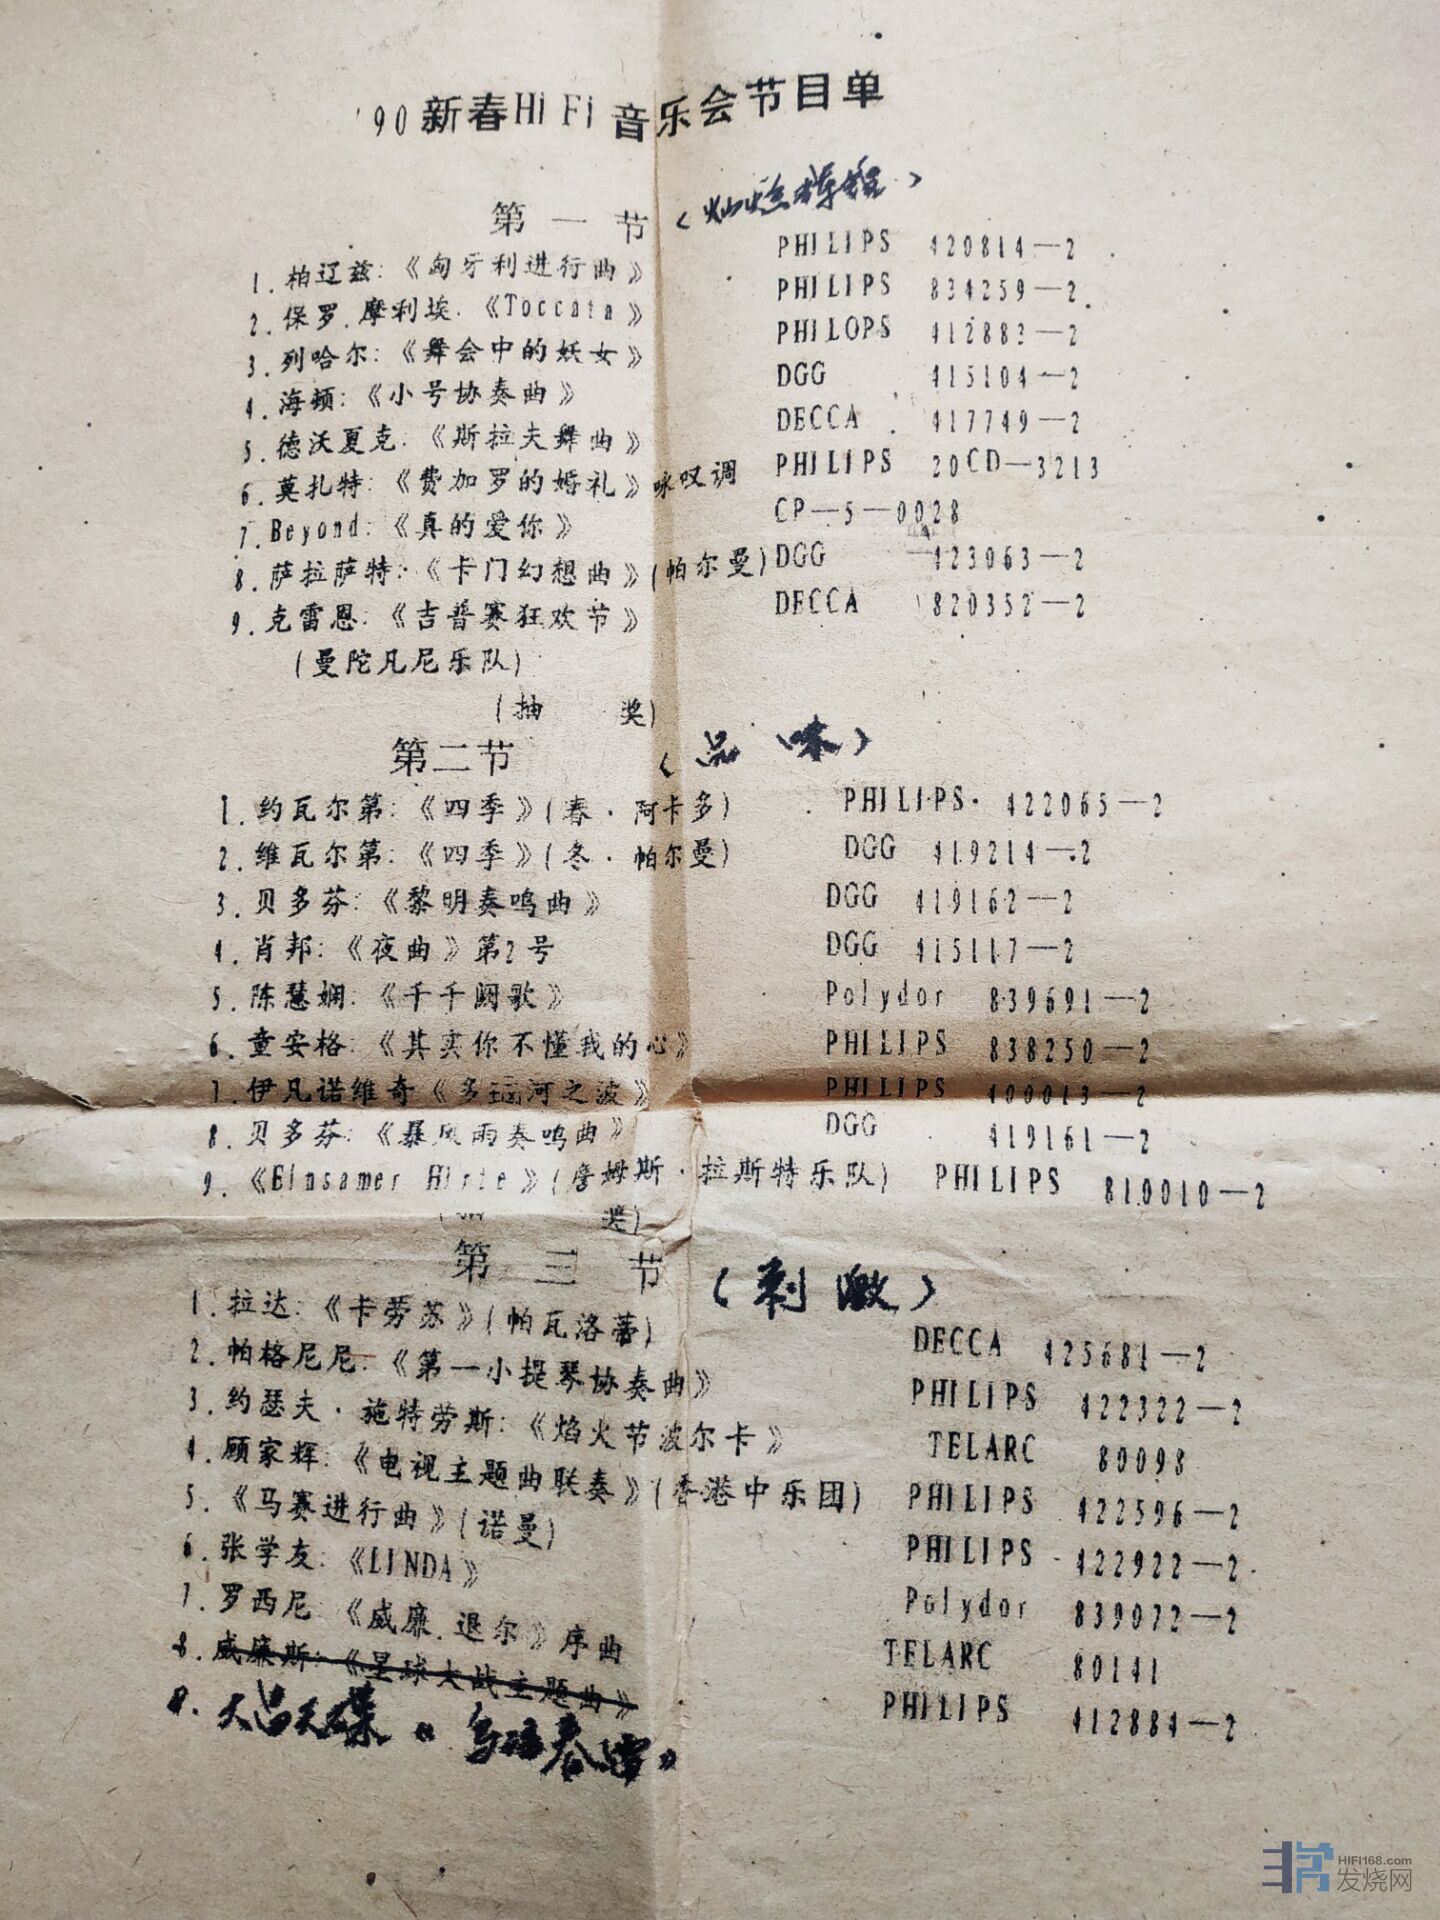 '90新春Hi Fi音乐会节目单
第一节
1.柏辽兹:《匈牙利进行曲》 PHILIPS 420814—2
2.保罗.摩利埃:《Toccata》 PHILIPS 834259—2
3.列哈尔:《舞会中的妖女》 PHILOPS 412883—2
4.海顿:《小号协奏曲》 DGG 415104—2
5.德沃夏克:《斯拉夫舞曲》 DECCA 417749—2
6.莫扎特:《费加罗的婚礼》咏叹调 PHILIPS 20CD—3213
7.Beyond:《真的爱你》 CP—5—0028
8.萨拉萨特·《卡门幻想曲》(帕尔曼) DGG 423063—2
9.克雷恩:《吉普赛狂欢节》 DECCA 820352—2
(曼陀凡尼乐队)
(抽 奖)
第二节 (品味)
1.约瓦尔第:《四季》(春·阿卡多) PHILIPS· 422065—2
2.维瓦尔第:《四季》(冬·帕尔曼) DGG 419214—2
3.贝多芬:《黎明奏鸣曲》 DGG 419162—2
4.肖邦:《夜曲》第2号 DGG 415117—2
5.陈慧娴:《千千阙歌》 Polydor 839691—2
6.童安格:《其实你不懂我的心》 PHILIPS 838250—2
7.伊凡诺维奇《多瑙河之波》 PHILIPS 400013—2
8.贝多芬:《暴风雨奏鸣曲》 DGG 419161—2
9.《Einsamer Hirte》(詹姆斯·拉斯特乐队) PHILIPS 810010—2
(抽 奖)
第三节 (刺激)
1.拉达:《卡劳苏》(帕瓦洛蒂) DECCA 425681—2
2.帕格尼尼:《第一小提琴协奏曲》 PHILIPS 422322—2
3.约瑟夫·施特劳斯:《焰火节波尔卡》 TELARC 80098
4.顾家辉:《电视主题曲联奏》(香港中乐团) PHILIPS 422596—2
5.《马赛进行曲》(诺曼) PHILIPS 422922—2
6.张学友:《LINDA》 Polydor 839072—2
7.罗西尼《威廉.退尔》序曲 TELARC 80141
8.威廉斯:《星球大战主题曲》 PHILIPS 412884—2
8.大吕天碟《
HIFI168.com
发烧网